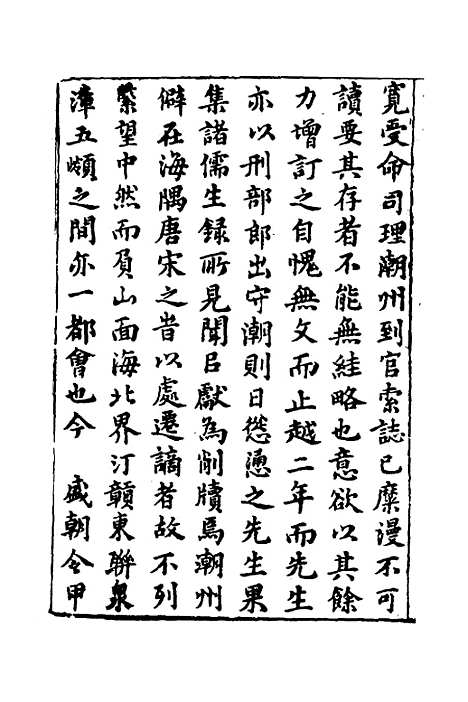 寬受命司理潮州到官索誌已糜漫不可
讀要其存者不能無絓略也意欲以其餘
力增訂之自愧無文而止越二年而先生
亦以刑部郎出守潮則日慫慂之先生果
集諸儒生録所見聞㠯獻為削牘焉潮州
僻在海隅唐宋之昔以處遷謫者故不列
緊望中然而負山面海北界汀贛東聯泉
漳五嶺之間亦一都會也今　盛朝令甲